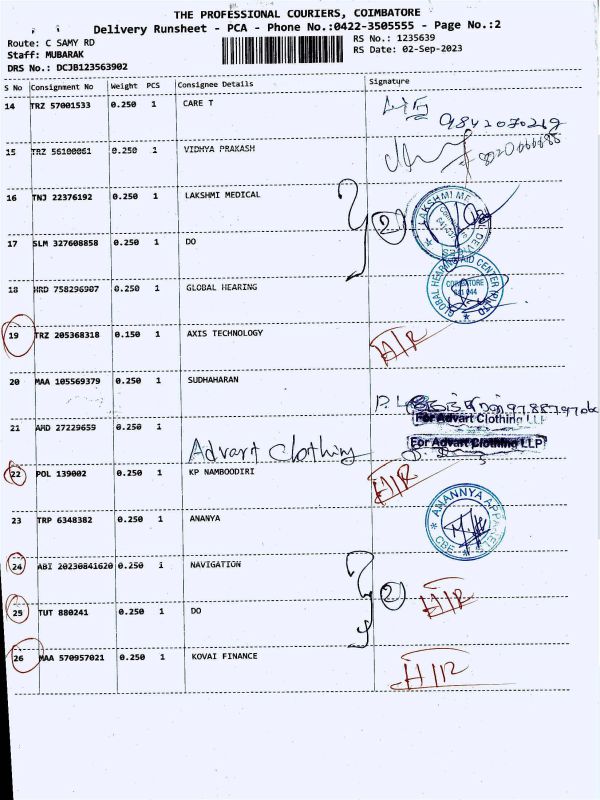 THE PROFESSIONAL COURIERS, COIMBATORE
Delivery Runsheet - PCA - Phone No.:0422-3505555 - Page No.:2
Route: C SAMY RD RS No.: 1235639
Staff: MUBARAK RS Date: 02-Sep-2023
DRS No.: DCJB123563902
S No Consignment No Weight PCS Consignee Details Signature
14 TRZ 57001533 0.250 1 CARE T
9842070219
15 TRZ 56100061 0.250 1 VIDHYA PRAKASH
16 TNJ 22376192 0.250 1 LAKSHMI MEDICAL 2
17 SLM 327608858 0.250 1 DO
18 HRD 758296907 0.250 1 GLOBAL HEARING
GLOBAL HEARING AID CENTER
COIMBATORE
641 044
19 TRZ 205368318 0.150 1 AXIS TECHNOLOGY H/R
20 MAA 105569379 0.250 1 SUDHAHARAN
21 AMD 27229659 0.250 1 Advart Clothing
For Advart Clothing LLP
For Advart Clothing LLP
22 POL 139002 0.250 1 KP NAMBOODIRI H/R
23 TRP 6348382 0.250 1 ANANYA
ANANNYA APPAREL
CBE
24 ABI 20230841620 0.250 1 NAVIGATION 2
25 TUT 880241 0.250 1 DO H/R
26 MAA 570957021 0.250 1 KOVAI FINANCE H/R